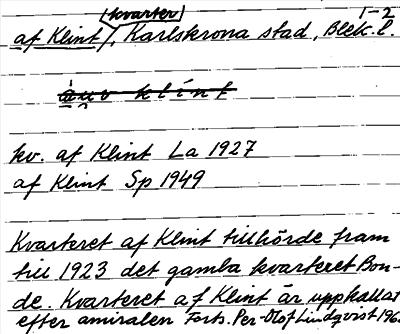 (kvarter) 1-2
af Klint, Karlskrona stad, Blek. l.
kv. af Klint La 1927
af Klint Sp 1949
Kvarteret af Klint tillhörde fram
till 1923 det gamba kvarteret Bon-
de. Kvarteret af Klint är uppkallat
efter amiralen Forts. Per-Olof Lindqvist 196